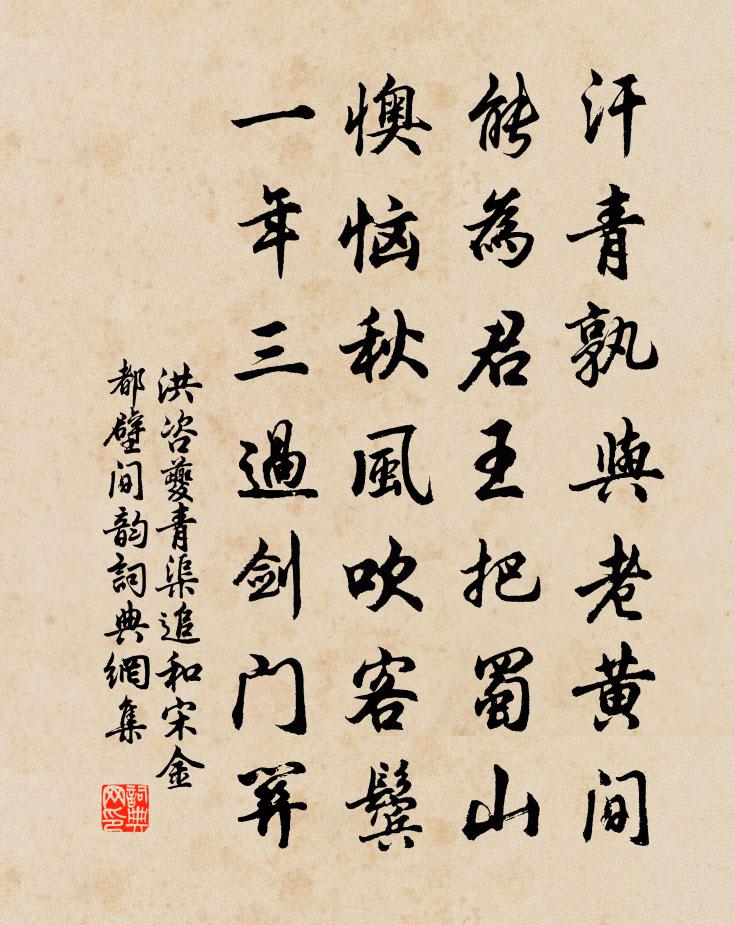 汗青孰與老黄间
能為君王把蜀山
懊恼秋風吹客鬓
一年三過剑门关
洪咨夔青渠追和宋金
都壁间韵詞典網集
詞典网印